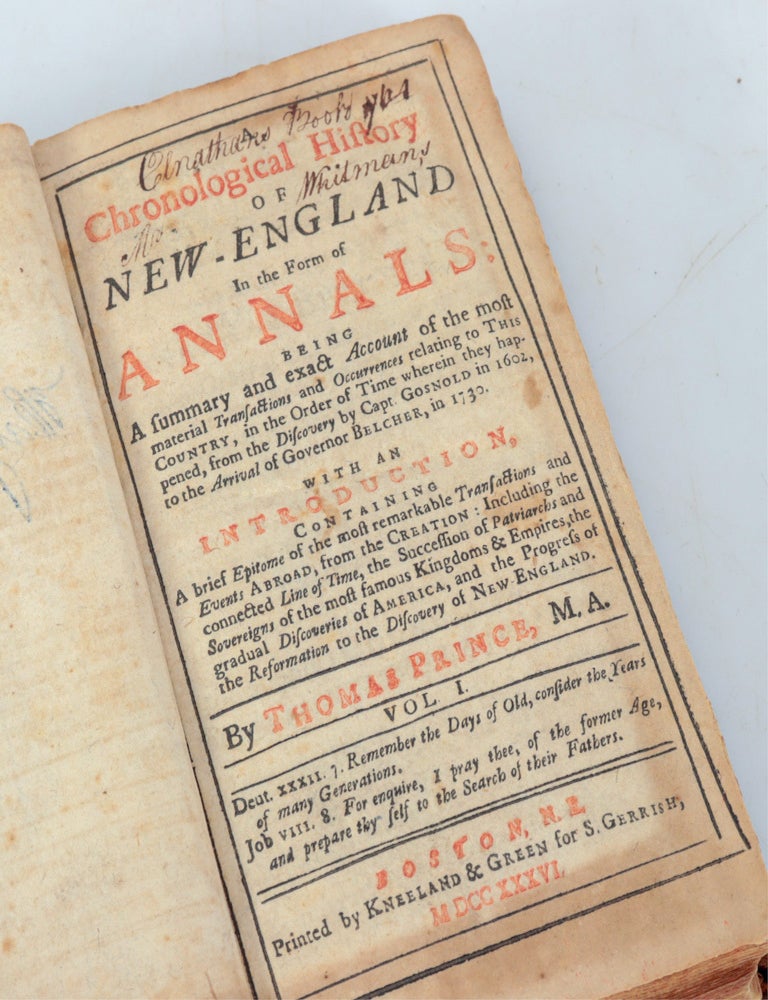 Elnathans Book 1761
A
Chronological Hiſtory
OF
Whitmans
NEW-ENGLAND
In the Form of
ANNALS:
BEING
A ſummary and exact Account of the moſt
material Tranſactions and Occurrences relating to THIS
COUNTRY, in the Order of Time wherein they hap-
pened, from the Diſcovery by Capt. GOSNOLD in 1602,
to the Arrival of Governor BELCHER, in 1730.
WITH AN
INTRODUCTION,
CONTAINING
A brief Epitome of the moſt remarkable Tranſactions and
Events ABROAD, from the CREATION: Including the
connected Line of Time, the Succeſſion of Patriarchs and
Sovereigns of the moſt famous Kingdoms & Empires, the
gradual Diſcoveries of AMERICA, and the Progreſs of
the Reformation to the Diſcovery of NEW-ENGLAND.
By THOMAS PRINCE, M.A.
VOL. I.
Deut. XXXII. 7. Remember the Days of Old, conſider the Years
of many Generations.
Job VIII. 8. For enquire, I pray thee, of the former Age,
and prepare thy ſelf to the Search of their Fathers.
BOSTON, N.E.
Printed by KNEELAND & GREEN for S. GERRISH,
MDCCXXXVI.